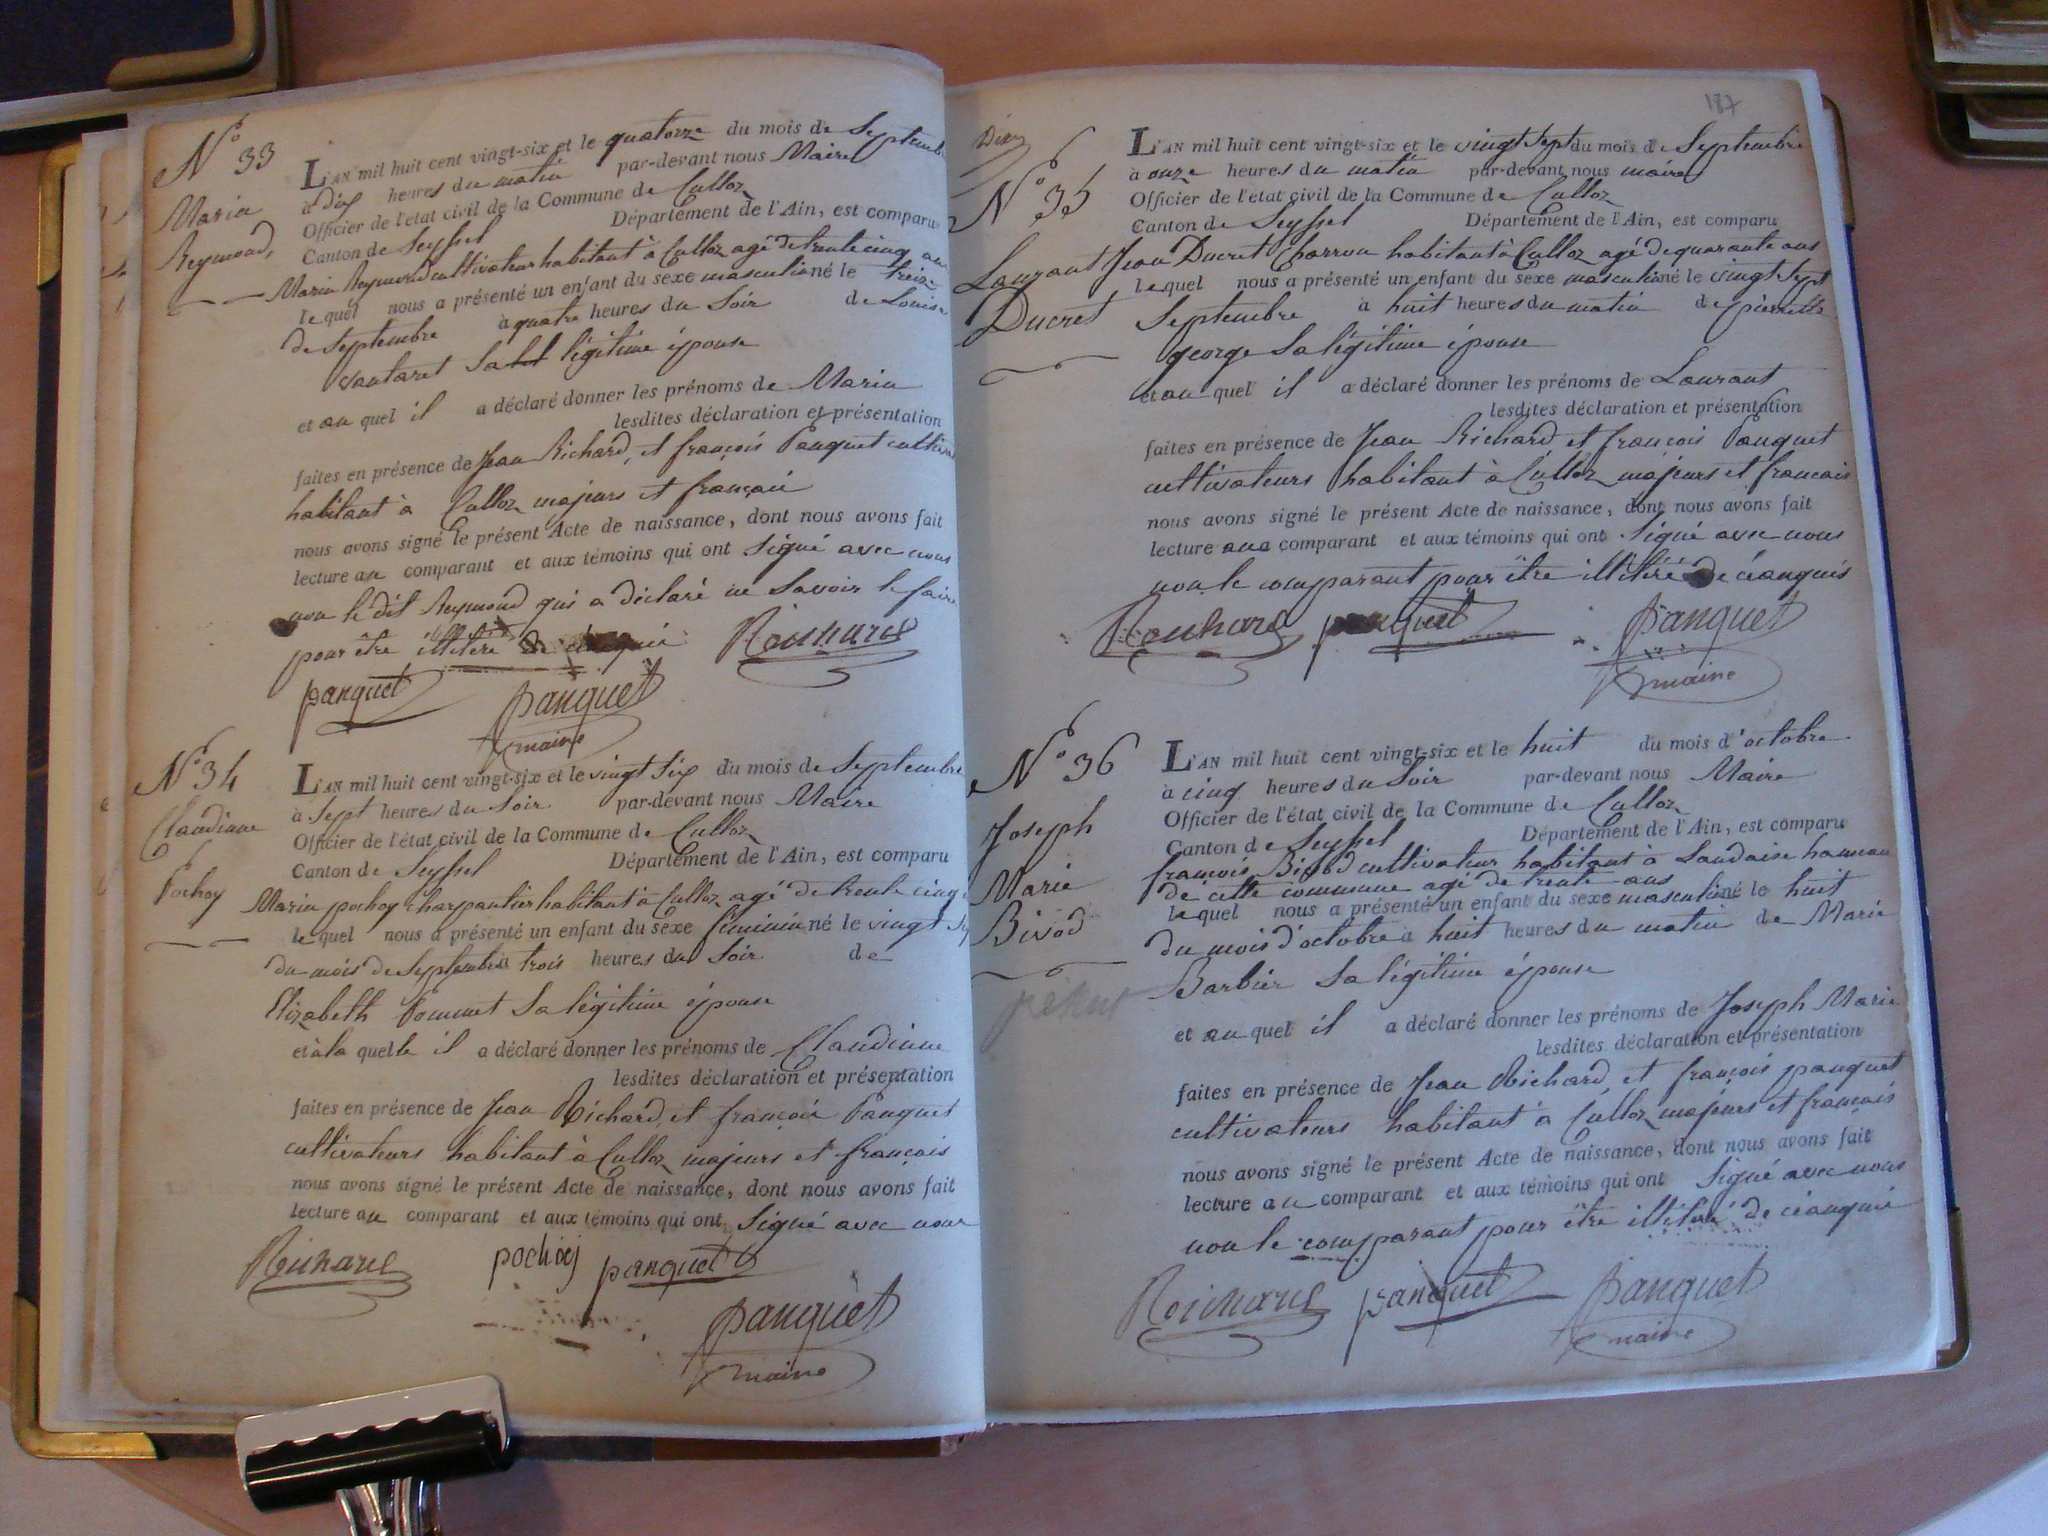 N° 33
Marin
Reymond,
L'AN mil huit cent vingt-six et le quatorze du mois de Septembre
à dix heures du matin par-devant nous Maire
Officier de l'état civil de la Commune de Culloz
Canton de Seyssel Département de l'Ain, est comparu
Marin Reymond cultivateur habitant à Culloz agé de trente cinq ans
lequel nous a présenté un enfant du sexe masculin né le treize
de Septembre à quatre heures du Soir de Louise
vautaret Sa légitime épouse
et au quel il a déclaré donner les prénoms de Marin
lesdites déclaration et présentation
faites en présence de Jean Richard, et françois Panquet cultiva
habitant à Culloz majeurs et français
nous avons signé le présent Acte de naissance, dont nous avons fait
lecture au comparant et aux témoins qui ont Signé avec nous
non le dit Reymond qui a déclaré ne Savoir le faire
pour être illitéré de ce enquis Richard
panquet panquet
maire
N° 34
Claudinne
Pochoy
L'AN mil huit cent vingt-six et le vingt Six du mois de Septembre
à Sept heures du Soir par-devant nous Maire
Officier de l'état civil de la Commune de Culloz
Canton de Seyssel Département de l'Ain, est comparu
Marin pochoy charpantier habitant à Culloz agé de trente cinq
lequel nous a présenté un enfant du sexe féminin né le vingt Six
du mois de Septembre à trois heures du Soir de
Elizabeth Pommet Sa légitime épouse
et à la quelle il a déclaré donner les prénoms de Claudinne
lesdites déclaration et présentation
faites en présence de Jean Richard, et françois Panquet
cultivateurs habitant à Culloz majeurs et français
nous avons signé le présent Acte de naissance, dont nous avons fait
lecture au comparant et aux témoins qui ont Signé avec nous
Richard pochoy panquet
panquet
maire
187
N° 35
Laurant
Ducret
L'AN mil huit cent vingt-six et le vingt Sept du mois de Septembre
à onze heures du matin par-devant nous maire
Officier de l'état civil de la Commune de Culloz
Canton de Seyssel Département de l'Ain, est comparu
Jean Ducret Charron habitant à Culloz agé de quarante ans
lequel nous a présenté un enfant du sexe masculin né le vingt Sept
Septembre à huit heures du matin de pierrette
george Sa légitime épouse
et au quel il a déclaré donner les prénoms de Laurant
lesdites déclaration et présentation
faites en présence de Jean Richard et françois Panquet
cultivateurs habitant à Culloz majeurs et français
nous avons signé le présent Acte de naissance, dont nous avons fait
lecture au comparant et aux témoins qui ont Signé avec nous
non le comparant pour être illitéré de ce enquis
Richard panquet panquet
maire
N° 36
Joseph
Marie
Bivod
L'AN mil huit cent vingt-six et le huit du mois d'octobre
à cinq heures du Soir par-devant nous Maire
Officier de l'état civil de la Commune de Culloz
Canton de Seyssel Département de l'Ain, est comparu
françois Bivod cultivateur habitant à Landaise hameau
de cette commune agé de trente ans
lequel nous a présenté un enfant du sexe masculin né le huit
du mois d'octobre à huit heures du matin de Marie
Barbier Sa légitime épouse
et au quel il a déclaré donner les prénoms de Joseph Marie
lesdites déclaration et présentation
faites en présence de Jean Richard, et françois panquet
cultivateurs habitant à Culloz majeurs et français
nous avons signé le présent Acte de naissance, dont nous avons fait
lecture au comparant et aux témoins qui ont Signé avec nous
non le comparant pour être illitéré de ce enquis
Richard panquet panquet
maire